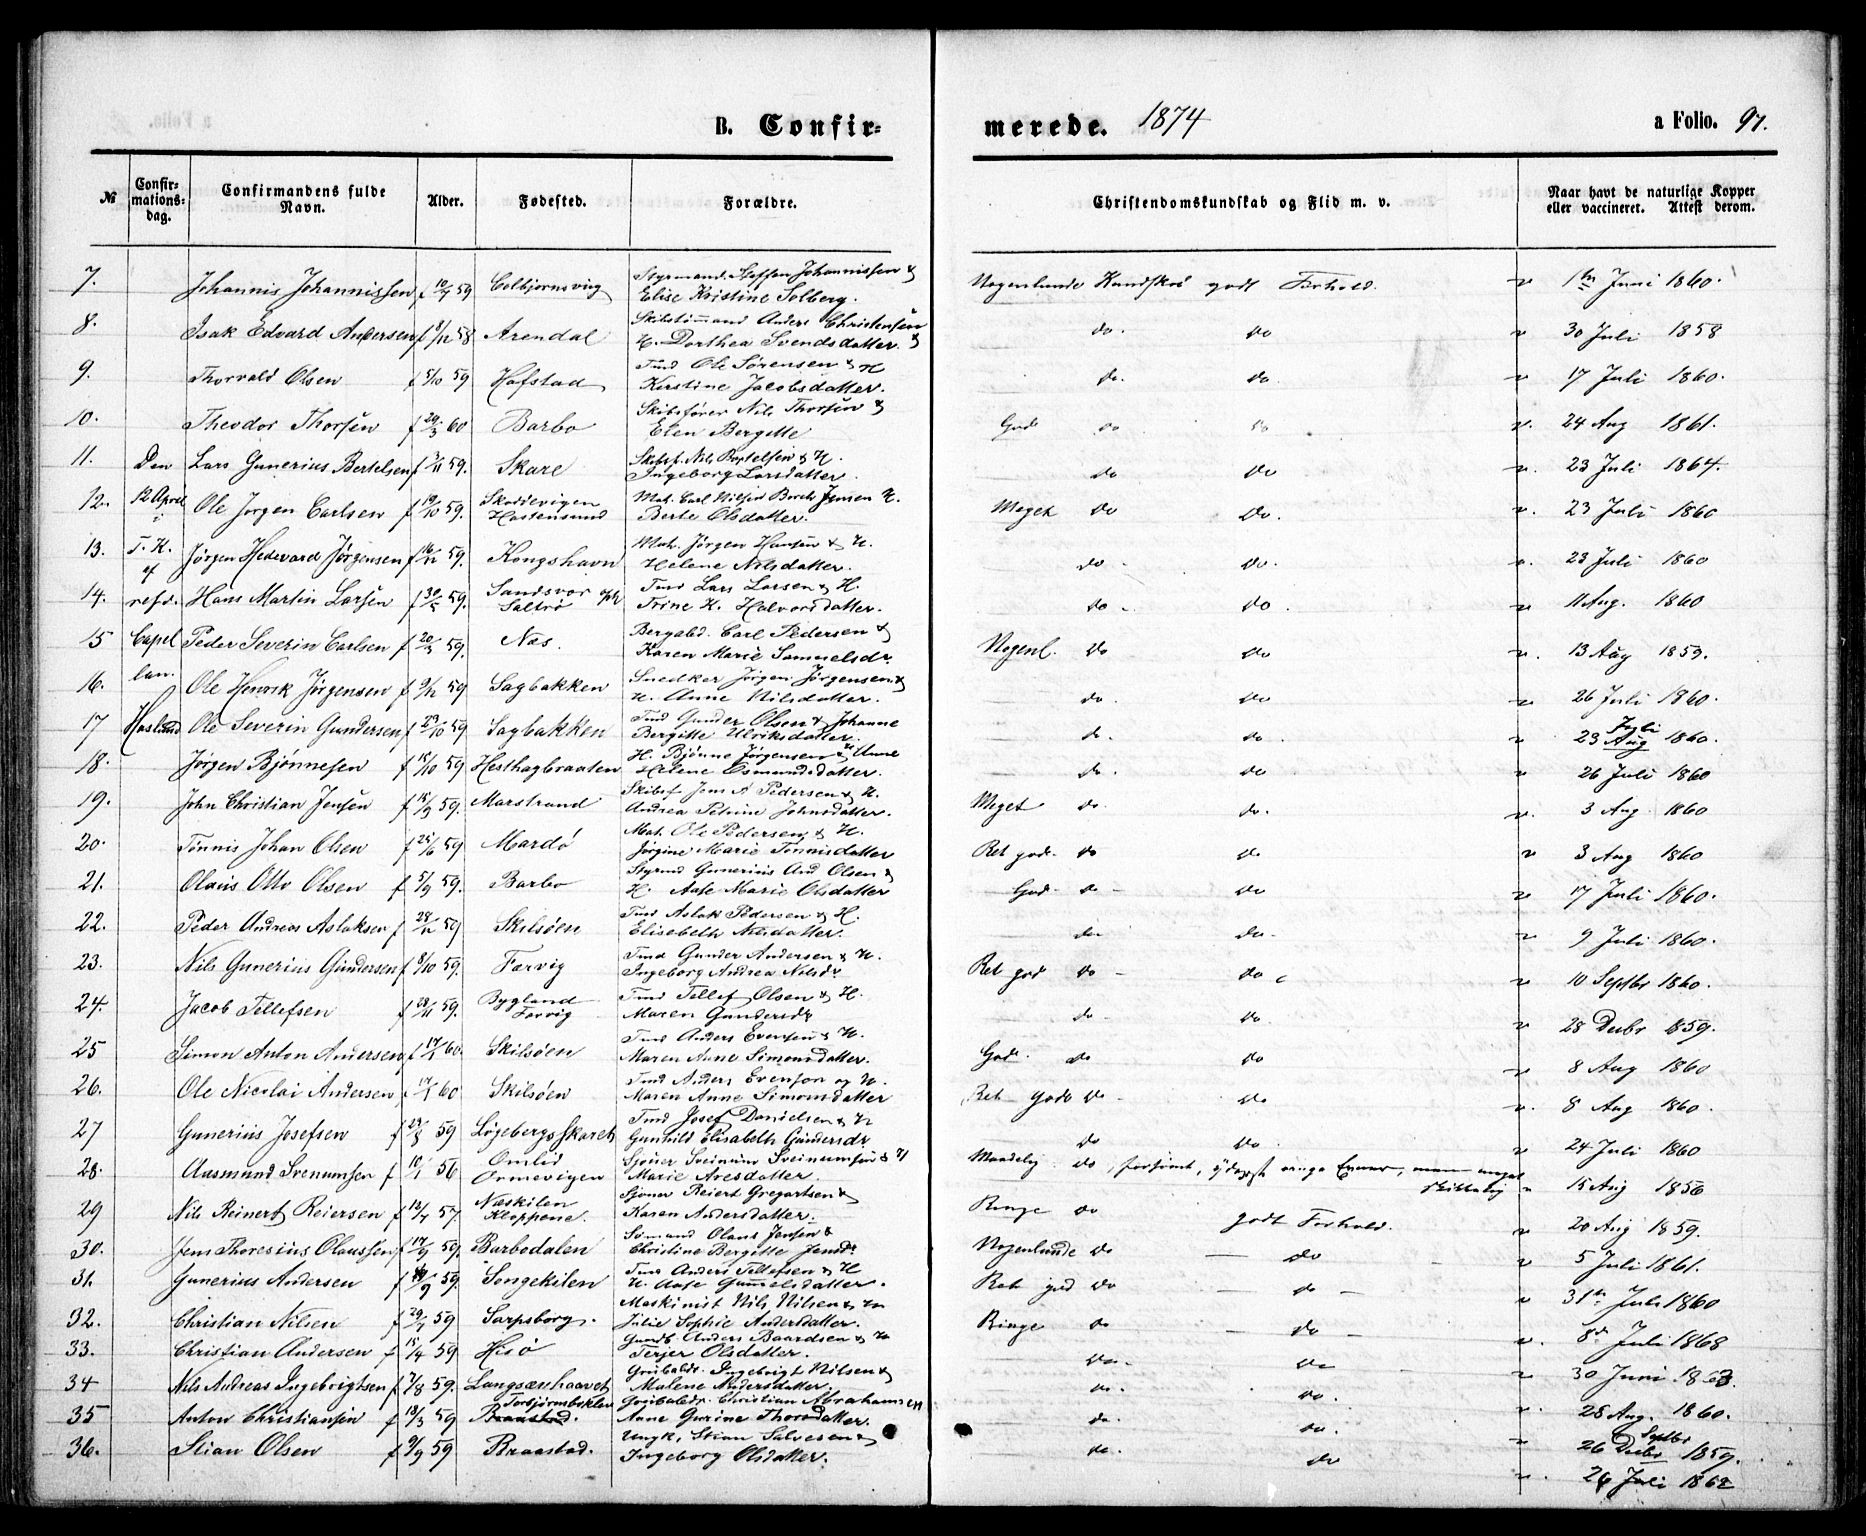 B. Confir-
merede. 1874
a Folio. 97.
№
Confir-
mations-
dag.
Confirmandens fulde
Navn.
Alder.
Fødested.
Forældre.
Christendomskundskab og Flid m. v.
Naar havt de naturlige Kopper
eller vaccineret. Attest derom.
Den
12 April
i
T. K.
af
resd.
Capel
lan.
Haslund
7. Johannis Johannissen f 10/7 59 Colbjørnsvig Styrmand Steffen Johannissen &
Elise Kristine Solberg. Nogenlunde Kundskab godt Forhold. v 1ste Juni 1860.
8. Isak Edvard Andersen f 9/12 58 Arendal Skibstømmand Anders Christensen
H. Dorthea Svendsdatter & do. do v 30 Juli 1858
9. Thorvald Olsen f 5/10 59 Hafstad Tmd Ole Sørensen & H
Kirstine Jacobsdatter. do. do. v 17 Juli 1860.
10. Theodor Thorsen f 20/3 60 Barbo Skibsfører Nils Thorsen &
Elen Bergitte God do do v. 24 Aug 1861.
11. Lars Gunerius Bertelsen f 3/11 59. Skare Skibsf. Nils Bertelsen & H.
Ingeborg Larsdatter. do do v. 23 Juli 1864.
12. Ole Jørgen Carlsen f 19/10 59. Skoddevigen
Hastensund Mat. Carl Nilsen Borch Jensen H.
Berte Olsdatter. Meget do do. v. 23 Juli 1860
13. Jørgen Hedevard Jørgensen f 16/12 59. Kongshavn Mat. Jørgen Hansen & H.
Helene Nilsdatter. do do. v. 23 Juli 1860
14. Hans Martin Larsen f 30/5 59. Sandsvor
Saltrø Tmd Lars Larsen & H.
Trine K. Halvorsdatter. do do. v 11 Aug. 1860
15 Peder Severin Carlsen f 20/3 59. Næs. Bergabd. Carl Pedersen &
Karen Marie Sammelsdr. Nogenl. do do v. 13 Aug 1859.
16. Ole Henrik Jørgensen f 9/12 59 Sagbakken Snedker Jørgen Jørgensen &
H. Anne Nilsdatter. do do v 26 Juli 1860.
17 Ole Severin Gundersen f 23/10 59 Sagbakken Tmd Gunder Olsen & Johanne
Bergitte Ulriksdatter. do. do. v Juli
23 Aug 1860.
18. Jørgen Bjønnesen f 15/10 59 Hesthagbraaten H. Bjønne Jørgensen & Anne
Helene Osmundsdatter. do. do. v 26 Juli 1860
19. John Christian Jensen f 15/9 59. Marstrand Skibsf Jens A Pedersen & H.
Andrea Petrine Johnsdatter. Meget do. do. v. 3 Aug. 1860
20. Tønnis Johan Olsen f 25/6 59 Mardø Mat. Ole Pedersen & H.
Jørgine Marie Tønnisdatter Ret god. do do v 3 Aug 1860
21. Olaus Otto Olsen f 5/9 59. Barbo Styrmd Gunerius And Olsen &
H. Aase Marie Olsdatter God do do v 17 Juli 1860.
22. Peder Andreas Aslaksen f 28/12 59 Skilsøen Tmd Aslak Pedersen & H.
Elisebeth Nilsdatter. do do. v 9 Juli 1860.
23. Nils Gunerius Gundersen f 8/10 59. Færvig Tmd Gunder Andersen & H.
Ingeborg Andrea Nilsdr Ret god do do v 10 Septbr 1860.
24. Jacob Tellefsen f 28/11 59. Bygland
Færvig Tmd Tellef Olsen & H.
Maren Gundersdr do do. v 28 Decbr 1859.
25 Simon Anton Andersen f 17/1 60. Skilsøen Tmd Anders Evensen & H.
Maren Anne Simonsdatter. God. do do v 8 Aug 1860
26. Ole Nicolai Andersen f 17/1 60 Skilsøen Tmd Anders Evenson og H.
Maren Anne Simonsdatter Ret god do do v. 8 Aug 1860.
27 Gunerius Josefsen f 29/8 59 Løgebergsskaret Tmd Josef Danielsen & H
Gunhild Elisabeth Gundersdr. do do. v 24 Juli 1860
28. Aasmund Svenumsen f 10/1 56 Omlid
Ormevigen Sjøier Sveinum Sveinumsen & H
Marie Aresdatter. Maadelig do, forsømt, yderst ringe Evner, men meget
skikkelig v 15 Aug 1856
29 Nils Reinert Reiersen f 12/7 57. Næskilen
Kloppene. Sjøner Reiert Gregartsen &
Karen Andersdatter. Ringe do godt Forhold. v 20 Aug 1859.
30. Jens Thoresius Olaussen f 17/9 59. Barbodalen Sømand Olaus Jensen &
Christine Bergitte Jensdr. Nogenlunde do do v 5 Juli 1861.
31. Gunerius Andersen f 19/9 59. Songekilen Tmd Anders Tellefsen & H
H. Aase Gummelsdatter. Ret god do do v 31te Juli 1860
32. Christian Nilsen f 29/7 59 Sarpsborg. Maskinist Nils Nilsen & H
Julie Sophie Andersdatter. Ringe do do v. 8de Juli 1868
33. Christian Andersen f 15/4 59 Hisø Gaardb. Anders Baardsen & H
Terjer Olsdatter. do. do v 30 Juni 1863.
34 Nils Andreas Ingebrigtsen f 7/8 59. Langsæhaavet Grubabdr. Ingebrigt Nilsen &
Malene Andersdatter. do. do. v. 28 Aug. 1860.
35 Anton Christiansen f 18/3 59 Torbjørnsbolden
Braastad. Grubabdr. Christian Abrahamsen
Anne Gurine Thorsdatter. do. do. v Septbr
26 Decbr 1859.
36. Stian Olsen f 9/9 59 Braastad. Ungk. Stian Salvesen &
Ingeborg Olsdatter. do. do v. 24 Juli 1862